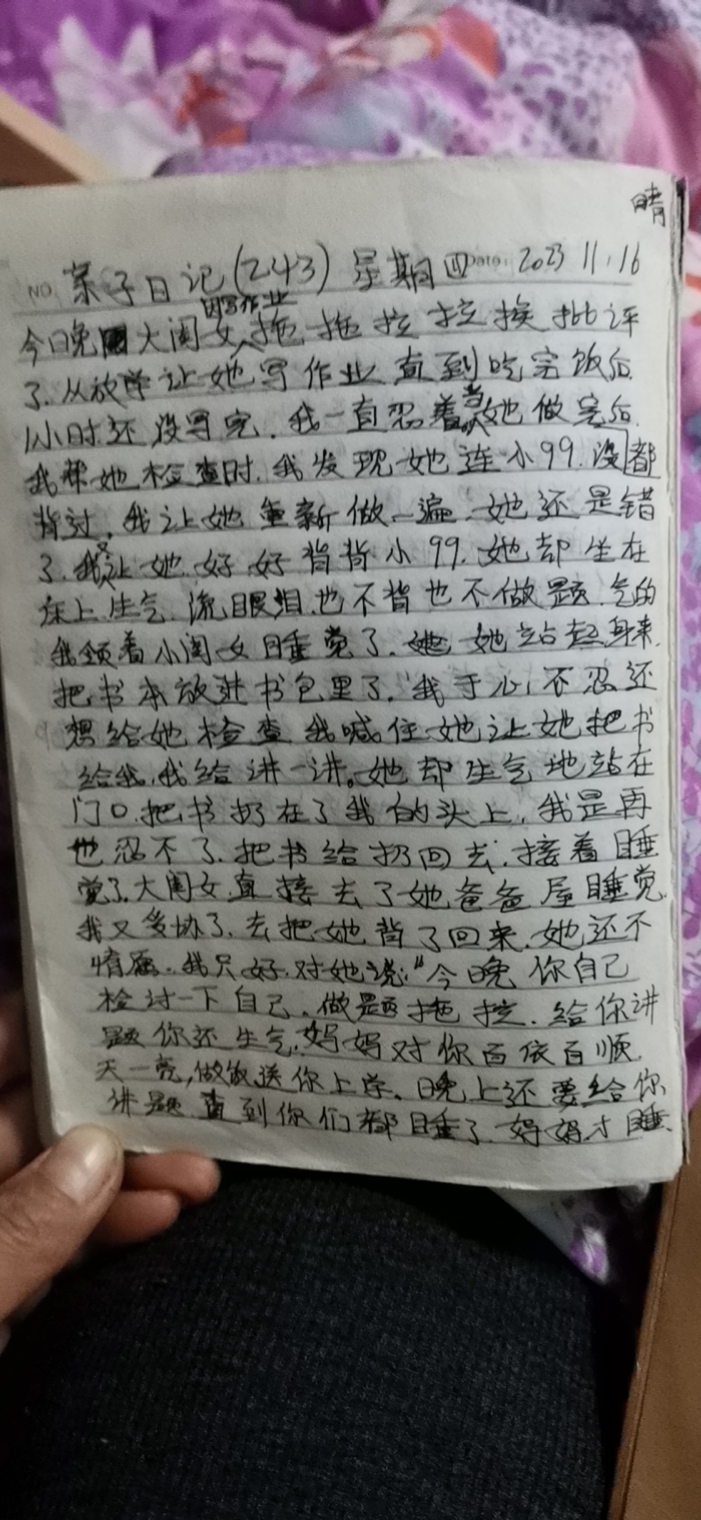 晴
NO. 亲子日记(243) 星期四 Date: 2023 11.16
因写作业
今日晚 大闺女拖拖拉拉挨批评
了.从放学让她写作业直到吃完饭后
1小时还没写完.我一直忍着当她做完后
我帮她检查时.我发现她连小99.没都
背过.我让她重新做一遍.她还是错
了.我又让她好好背背小99.她却坐在
床上生气.流眼泪.也不背也不做题.气的
我领着小闺女睡觉了.她她站起身来.
把书本放进书包里了.我于心不忍还
想给她检查我喊住她让她把书
给我.我给讲一讲。她却生气地站在
门口.把书扔在了我的头上.我是再
也忍不了.把书给扔回去.接着睡
觉了.大闺女直接去了她爸爸屋睡觉
我又妥协了.去把她背了回来.她还不
情愿.我只好对她说:"今晚你自己
检讨一下自己.做题拖拉.给你讲
题你还生气.妈妈对你百依百顺.
天一亮,做饭送你上学。晚上还要给你
讲题.直到你们都睡了.妈妈才睡.